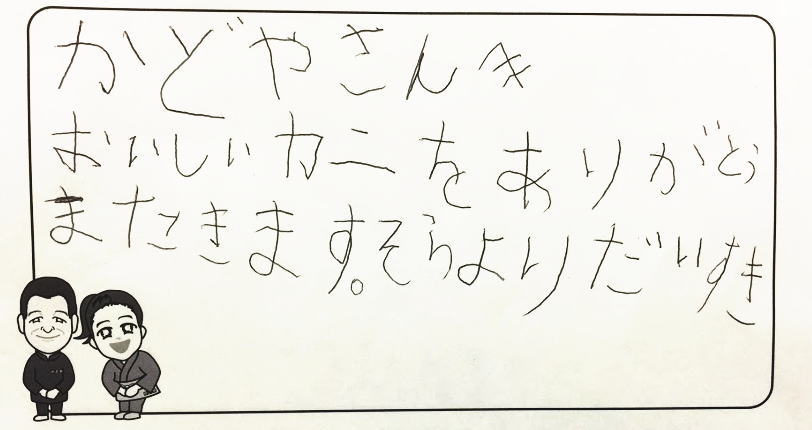 かどやさんへ
おいしいカニをありがとう
またきます。そらよりだいすき